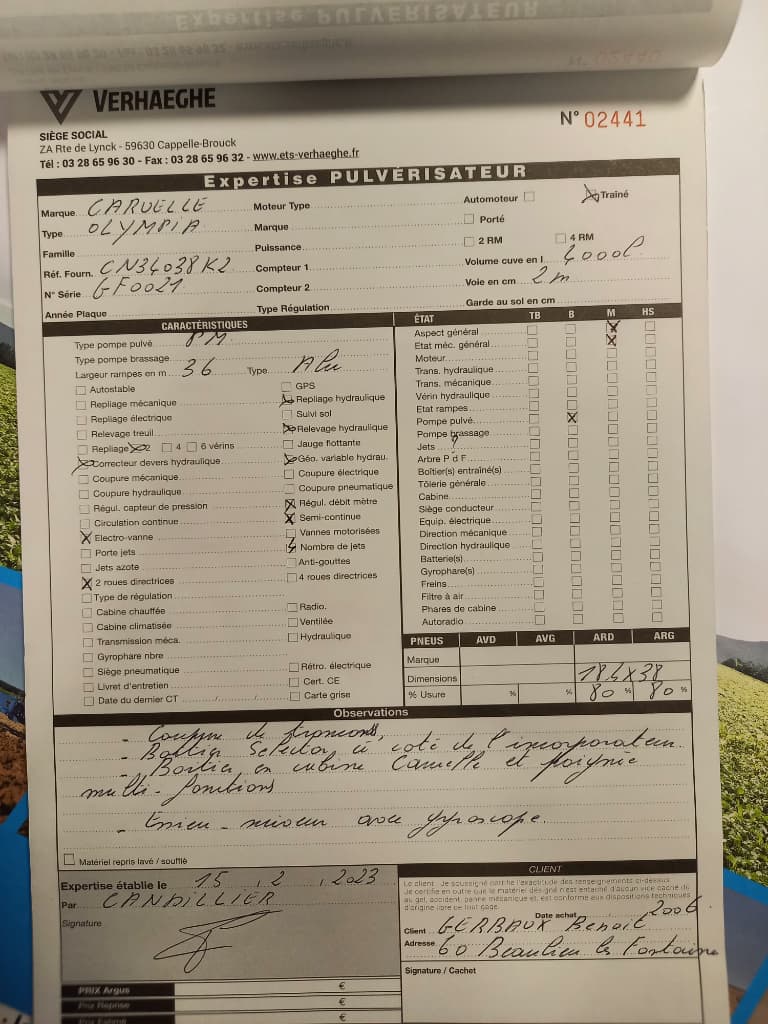 VERHAEGHE
N° 02441
SIÈGE SOCIAL
ZA Rte de Lynck - 59630 Cappelle-Brouck
Tél : 03 28 65 96 30 - Fax : 03 28 65 96 32 - www.ets-verhaeghe.fr
Expertise PULVÉRISATEUR
Marque CARUELLE
Type OLYMPIA
Famille
Réf. Fourn. CN34038K2
N° Série GF0021
Année Plaque
Moteur Type
Marque
Puissance
Compteur 1
Compteur 2
Type Régulation
Automoteur Traîné
Porté
2 RM 4 RM
Volume cuve en l 4000l
Voie en cm 2m
Garde au sol en cm
CARACTÉRISTIQUES
Type pompe pulvé PM
Type pompe brassage
Largeur rampes en m 36 Type Alu
Autostable GPS
Repliage mécanique Repliage hydraulique
Repliage électrique Suivi sol
Relevage treuil Relevage hydraulique
Repliage 2 4 6 vérins Jauge flottante
Correcteur devers hydraulique Géo. variable hydrau.
Coupure mécanique Coupure électrique
Coupure hydraulique Coupure pneumatique
Régul. capteur de pression Régul. débit mètre
Circulation continue Semi-continue
Electro-vanne Vannes motorisées
Porte jets Nombre de jets
Jets azote Anti-gouttes
2 roues directrices 4 roues directrices
Type de régulation
Cabine chauffée Radio.
Cabine climatisée Ventilée
Transmission méca. Hydraulique
Gyrophare nbre
Siège pneumatique Rétro. électrique
Livret d'entretien Cert. CE
Date du dernier CT / / Carte grise
ÉTAT TB B M HS
Aspect général
Etat méc. général
Moteur
Trans. hydraulique
Trans. mécanique
Vérin hydraulique
Etat rampes
Pompe pulvé
Pompe brassage
Jets
Arbre P d F
Boîtier(s) entraîné(s)
Tôlerie générale
Cabine
Siège conducteur
Equip. électrique
Direction mécanique
Direction hydraulique
Batterie(s)
Gyrophare(s)
Freins
Filtre à air
Phares de cabine
Autoradio
PNEUS AVD AVG ARD ARG
Marque
Dimensions 18.4X38
% Usure % % 80 % 80 %
Observations
- Coupure de tronçons,
- Boitier Selector à coté de l'incorporateur
- Boitier en cabine Caruelle et poignée
multi-fonctions
- Essieu-suiveur avec gyroscope.
Matériel repris lavé / soufflé
Expertise établie le 15 . 2 . 2023
Par CANDILLIER
Signature
PRIX Argus €
Prix Reprise €
€
CLIENT
Le client : Je soussigné certifie l'exactitude des renseignements ci-dessus.
Je certifie en outre que le matériel désigné n'est entaché d'aucun vice caché dû
au gel, accident, panne mécanique et, est conforme aux dispositions techniques
d'origine lors de tout gage.
Date achat 2006
Client GERBAUX Benoit
Adresse 60 Beaulieu les Fontaine
Signature / Cachet